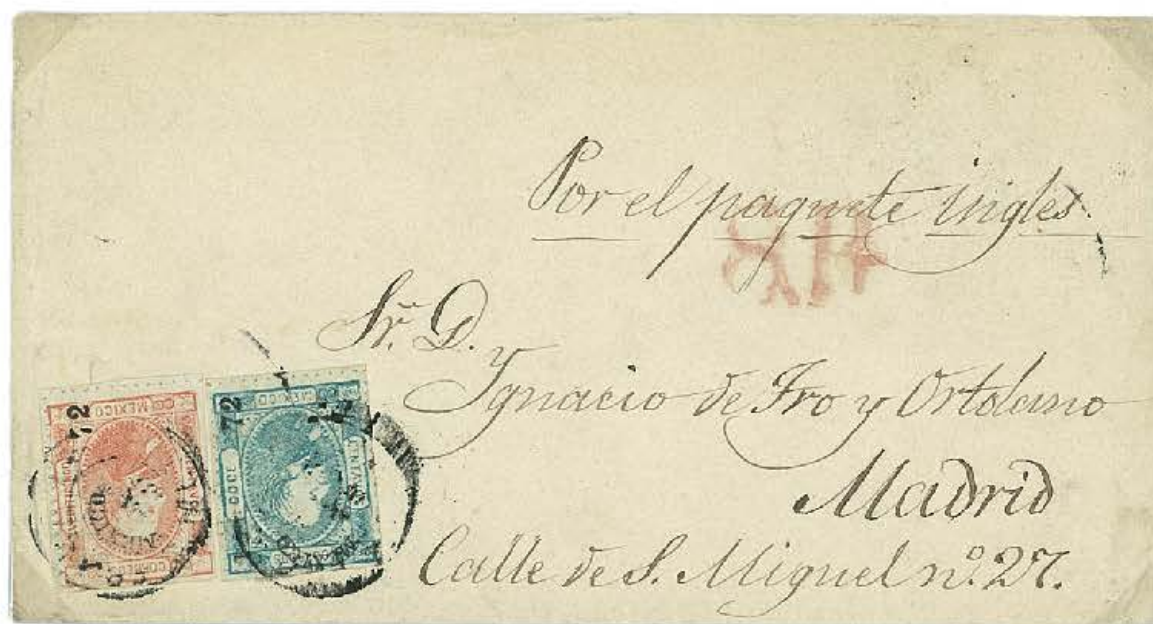 Por el paquete ingles.
8 Rs
Sr. D.
Ygnacio de Fro y Ortolano
Madrid
Calle de S. Miguel nº. 27.
72
MEXICO
72
MEXICO
DOCE